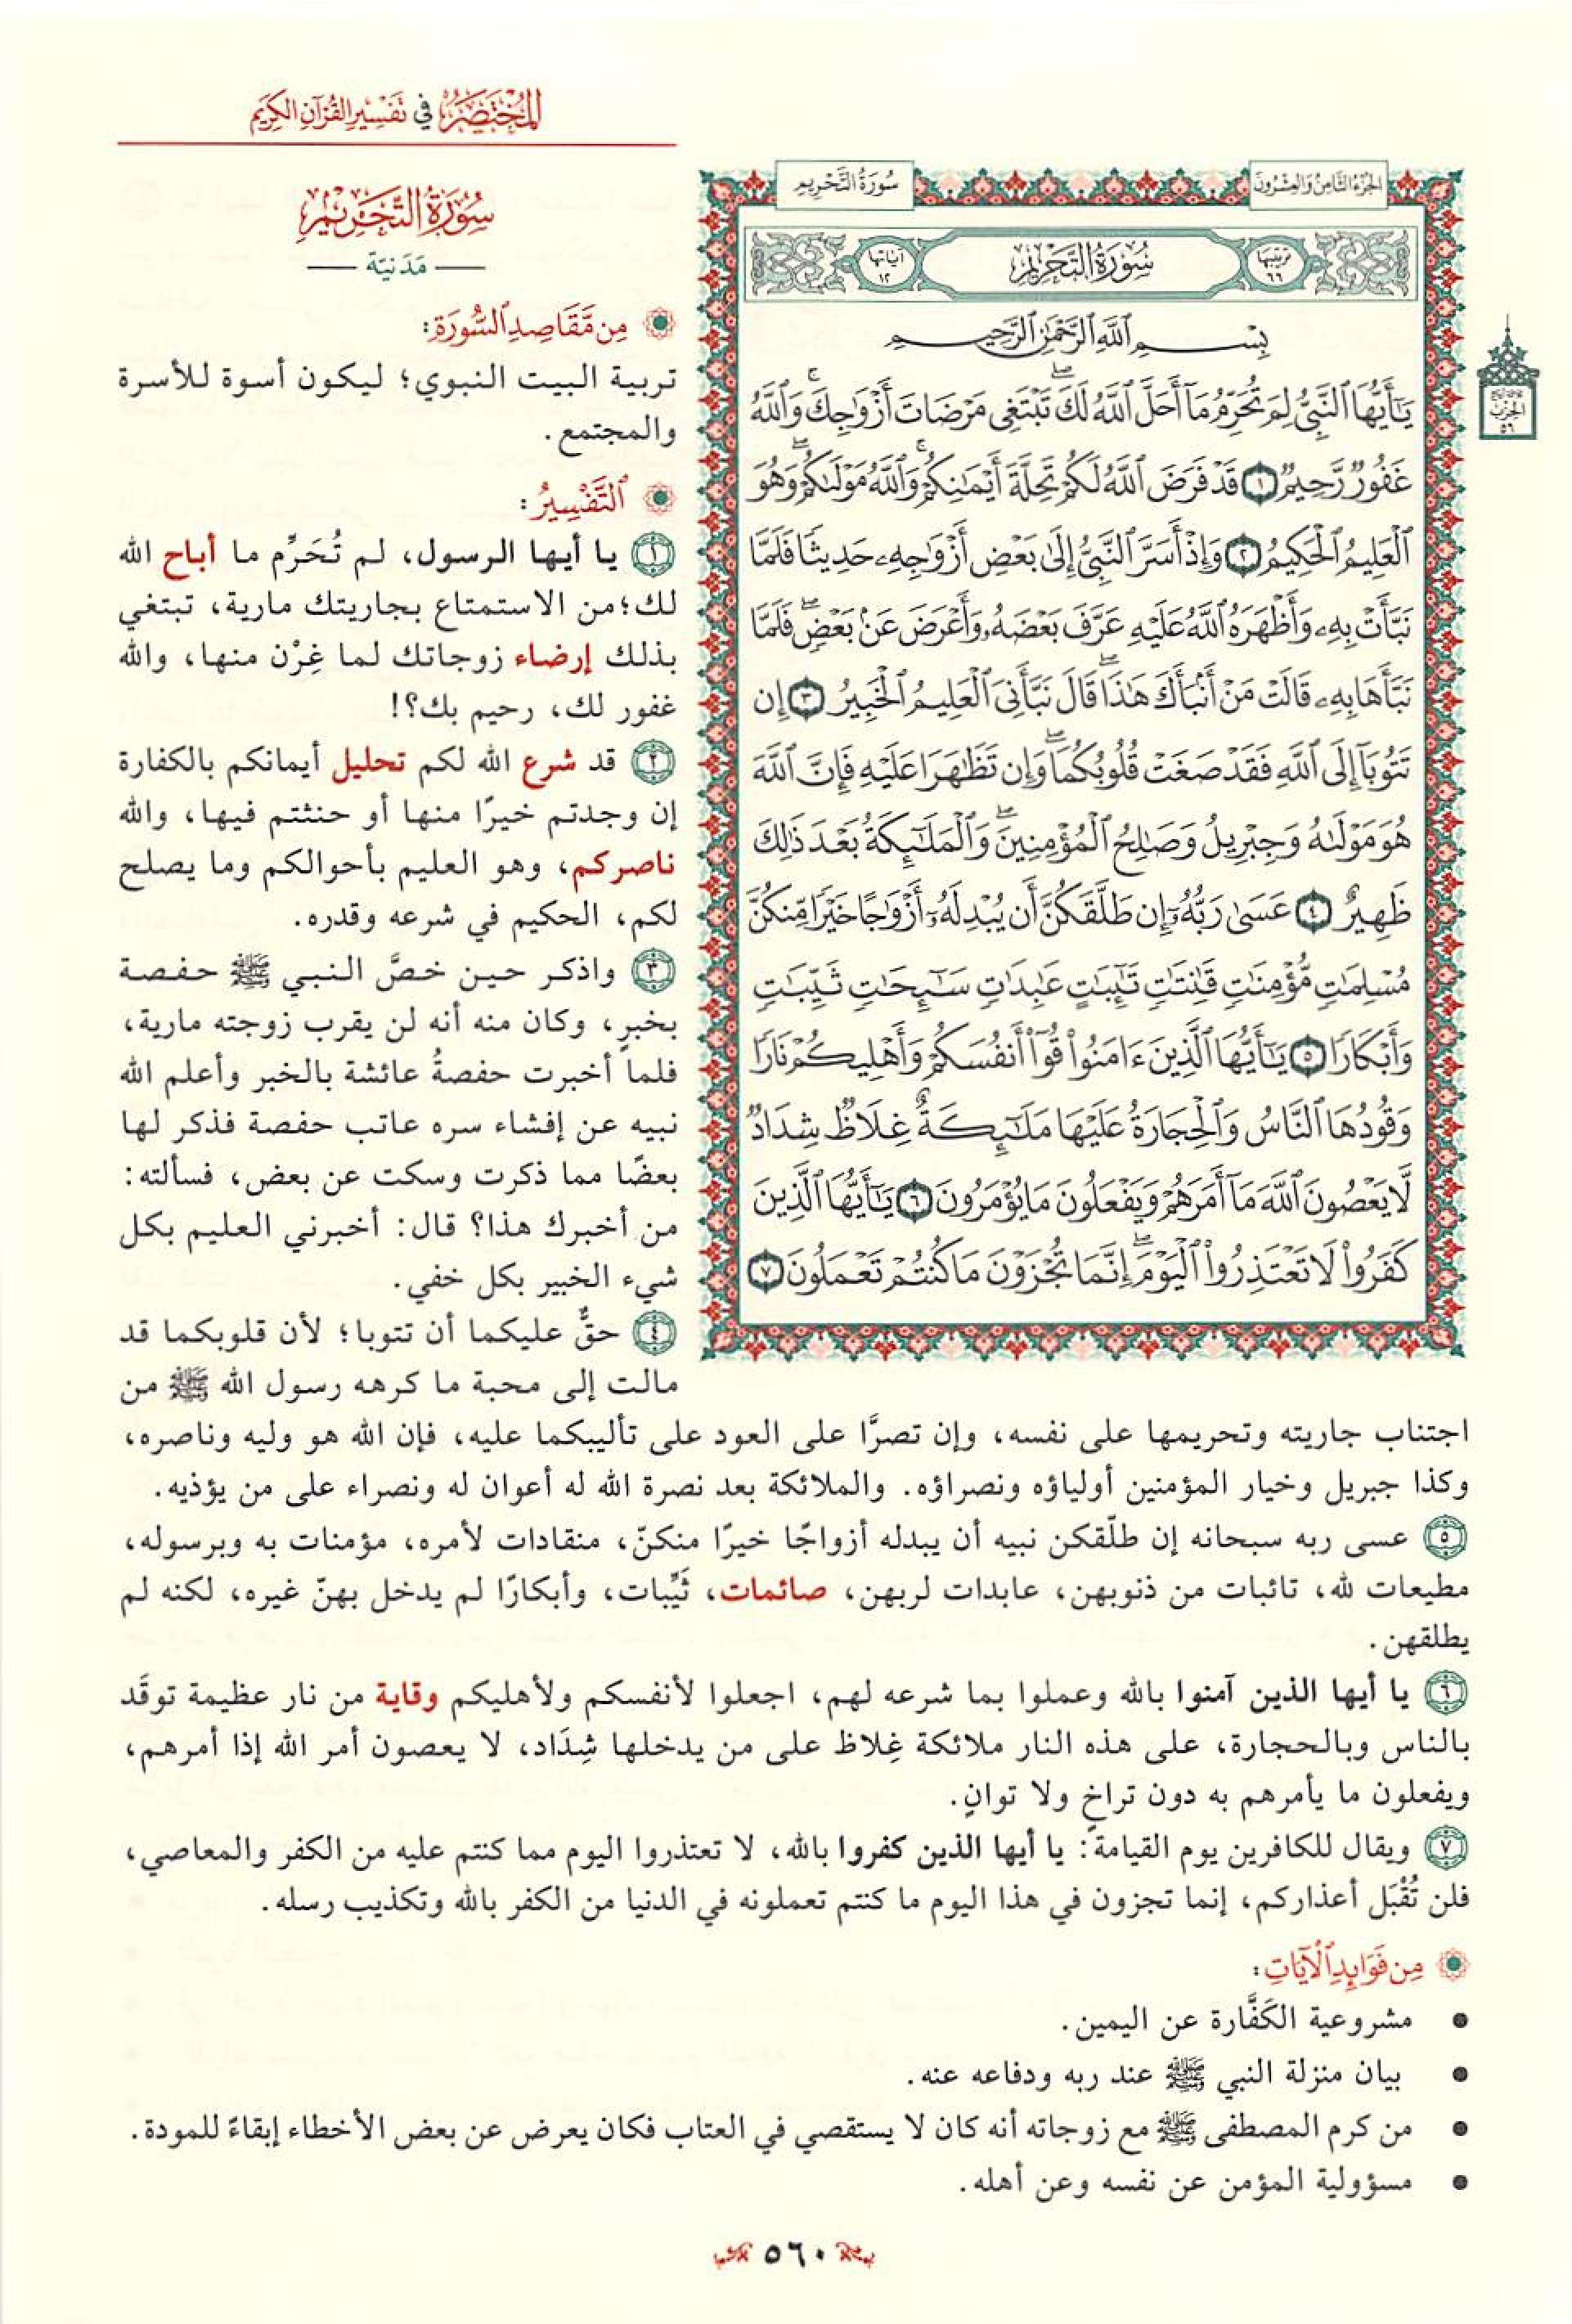 المختصر في تفسير القرآن الكريم
الجزء الثامن والعشرون
سورة التحريم
ترتيبها ٦٦
سُورَةُ التَّحْرِيمِ
آياتها ١٢
بِسْمِ ٱللَّهِ ٱلرَّحْمَٰنِ ٱلرَّحِيمِ
يَٰٓأَيُّهَا ٱلنَّبِىُّ لِمَ تُحَرِّمُ مَآ أَحَلَّ ٱللَّهُ لَكَۖ تَبْتَغِى مَرْضَاتَ أَزْوَٰجِكَۚ وَٱللَّهُ
غَفُورٌ رَّحِيمٌ ١ قَدْ فَرَضَ ٱللَّهُ لَكُمْ تَحِلَّةَ أَيْمَٰنِكُمْۚ وَٱللَّهُ مَوْلَىٰكُمْۖ وَهُوَ
ٱلْعَلِيمُ ٱلْحَكِيمُ ٢ وَإِذْ أَسَرَّ ٱلنَّبِىُّ إِلَىٰ بَعْضِ أَزْوَٰجِهِۦ حَدِيثًا فَلَمَّا
نَبَّأَتْ بِهِۦ وَأَظْهَرَهُ ٱللَّهُ عَلَيْهِ عَرَّفَ بَعْضَهُۥ وَأَعْرَضَ عَنۢ بَعْضٍۖ فَلَمَّا
نَبَّأَهَا بِهِۦ قَالَتْ مَنْ أَنۢبَأَكَ هَٰذَاۖ قَالَ نَبَّأَنِىَ ٱلْعَلِيمُ ٱلْخَبِيرُ ٣ إِن
تَتُوبَآ إِلَى ٱللَّهِ فَقَدْ صَغَتْ قُلُوبُكُمَاۖ وَإِن تَظَٰهَرَا عَلَيْهِ فَإِنَّ ٱللَّهَ
هُوَ مَوْلَىٰهُ وَجِبْرِيلُ وَصَٰلِحُ ٱلْمُؤْمِنِينَۖ وَٱلْمَلَٰٓئِكَةُ بَعْدَ ذَٰلِكَ
ظَهِيرٌ ٤ عَسَىٰ رَبُّهُۥٓ إِن طَلَّقَكُنَّ أَن يُبْدِلَهُۥٓ أَزْوَٰجًا خَيْرًا مِّنكُنَّ
مُسْلِمَٰتٍ مُّؤْمِنَٰتٍ قَٰنِتَٰتٍ تَٰٓئِبَٰتٍ عَٰبِدَٰتٍ سَٰٓئِحَٰتٍ ثَيِّبَٰتٍ
وَأَبْكَارًا ٥ يَٰٓأَيُّهَا ٱلَّذِينَ ءَامَنُوا۟ قُوٓا۟ أَنفُسَكُمْ وَأَهْلِيكُمْ نَارًا
وَقُودُهَا ٱلنَّاسُ وَٱلْحِجَارَةُ عَلَيْهَا مَلَٰٓئِكَةٌ غِلَاظٌ شِدَادٌ
لَّا يَعْصُونَ ٱللَّهَ مَآ أَمَرَهُمْ وَيَفْعَلُونَ مَا يُؤْمَرُونَ ٦ يَٰٓأَيُّهَا ٱلَّذِينَ
كَفَرُوا۟ لَا تَعْتَذِرُوا۟ ٱلْيَوْمَۖ إِنَّمَا تُجْزَوْنَ مَا كُنتُمْ تَعْمَلُونَ ٧
الحزب
٥٦
سُورَةُ التَّحْرِيمِ
مَدَنيّة
مِن مَّقَاصِدِ ٱلسُّورَةِ:
تربية البيت النبوي؛ ليكون أسوة للأسرة
والمجتمع.
ٱلتَّفْسِيرُ:
١ يا أيها الرسول، لم تُحَرِّم ما أباح الله
لك؛من الاستمتاع بجاريتك مارية، تبتغي
بذلك إرضاء زوجاتك لما غِرْن منها، والله
غفور لك، رحيم بك؟!
٢ قد شرع الله لكم تحليل أيمانكم بالكفارة
إن وجدتم خيرًا منها أو حنثتم فيها، والله
ناصركم، وهو العليم بأحوالكم وما يصلح
لكم، الحكيم في شرعه وقدره.
٣ واذكر حين خصَّ النبي ﷺ حفصة
بخبرٍ، وكان منه أنه لن يقرب زوجته مارية،
فلما أخبرت حفصةُ عائشة بالخبر وأعلم الله
نبيه عن إفشاء سره عاتب حفصة فذكر لها
بعضًا مما ذكرت وسكت عن بعض، فسألته:
من أخبرك هذا؟ قال: أخبرني العليم بكل
شيء الخبير بكل خفي.
٤ حقٌّ عليكما أن تتوبا؛ لأن قلوبكما قد
مالت إلى محبة ما كرهه رسول الله ﷺ من
اجتناب جاريته وتحريمها على نفسه، وإن تصرَّا على العود على تأليبكما عليه، فإن الله هو وليه وناصره،
وكذا جبريل وخيار المؤمنين أولياؤه ونصراؤه. والملائكة بعد نصرة الله له أعوان له ونصراء على من يؤذيه.
٥ عسى ربه سبحانه إن طلّقكن نبيه أن يبدله أزواجًا خيرًا منكنّ، منقادات لأمره، مؤمنات به وبرسوله،
مطيعات لله، تائبات من ذنوبهن، عابدات لربهن، صائمات، ثَيِّبات، وأبكارًا لم يدخل بهنّ غيره، لكنه لم
يطلقهن.
٦ يا أيها الذين آمنوا بالله وعملوا بما شرعه لهم، اجعلوا لأنفسكم ولأهليكم وقاية من نار عظيمة توقَد
بالناس وبالحجارة، على هذه النار ملائكة غِلاظ على من يدخلها شِدَاد، لا يعصون أمر الله إذا أمرهم،
ويفعلون ما يأمرهم به دون تراخٍ ولا توانٍ.
٧ ويقال للكافرين يوم القيامة: يا أيها الذين كفروا بالله، لا تعتذروا اليوم مما كنتم عليه من الكفر والمعاصي،
فلن تُقْبَل أعذاركم، إنما تجزون في هذا اليوم ما كنتم تعملونه في الدنيا من الكفر بالله وتكذيب رسله.
مِن فَوَائِدِ ٱلْآيَاتِ:
• مشروعية الكَفَّارة عن اليمين.
• بيان منزلة النبي ﷺ عند ربه ودفاعه عنه.
• من كرم المصطفى ﷺ مع زوجاته أنه كان لا يستقصي في العتاب فكان يعرض عن بعض الأخطاء إبقاءً للمودة.
• مسؤولية المؤمن عن نفسه وعن أهله.
٥٦٠